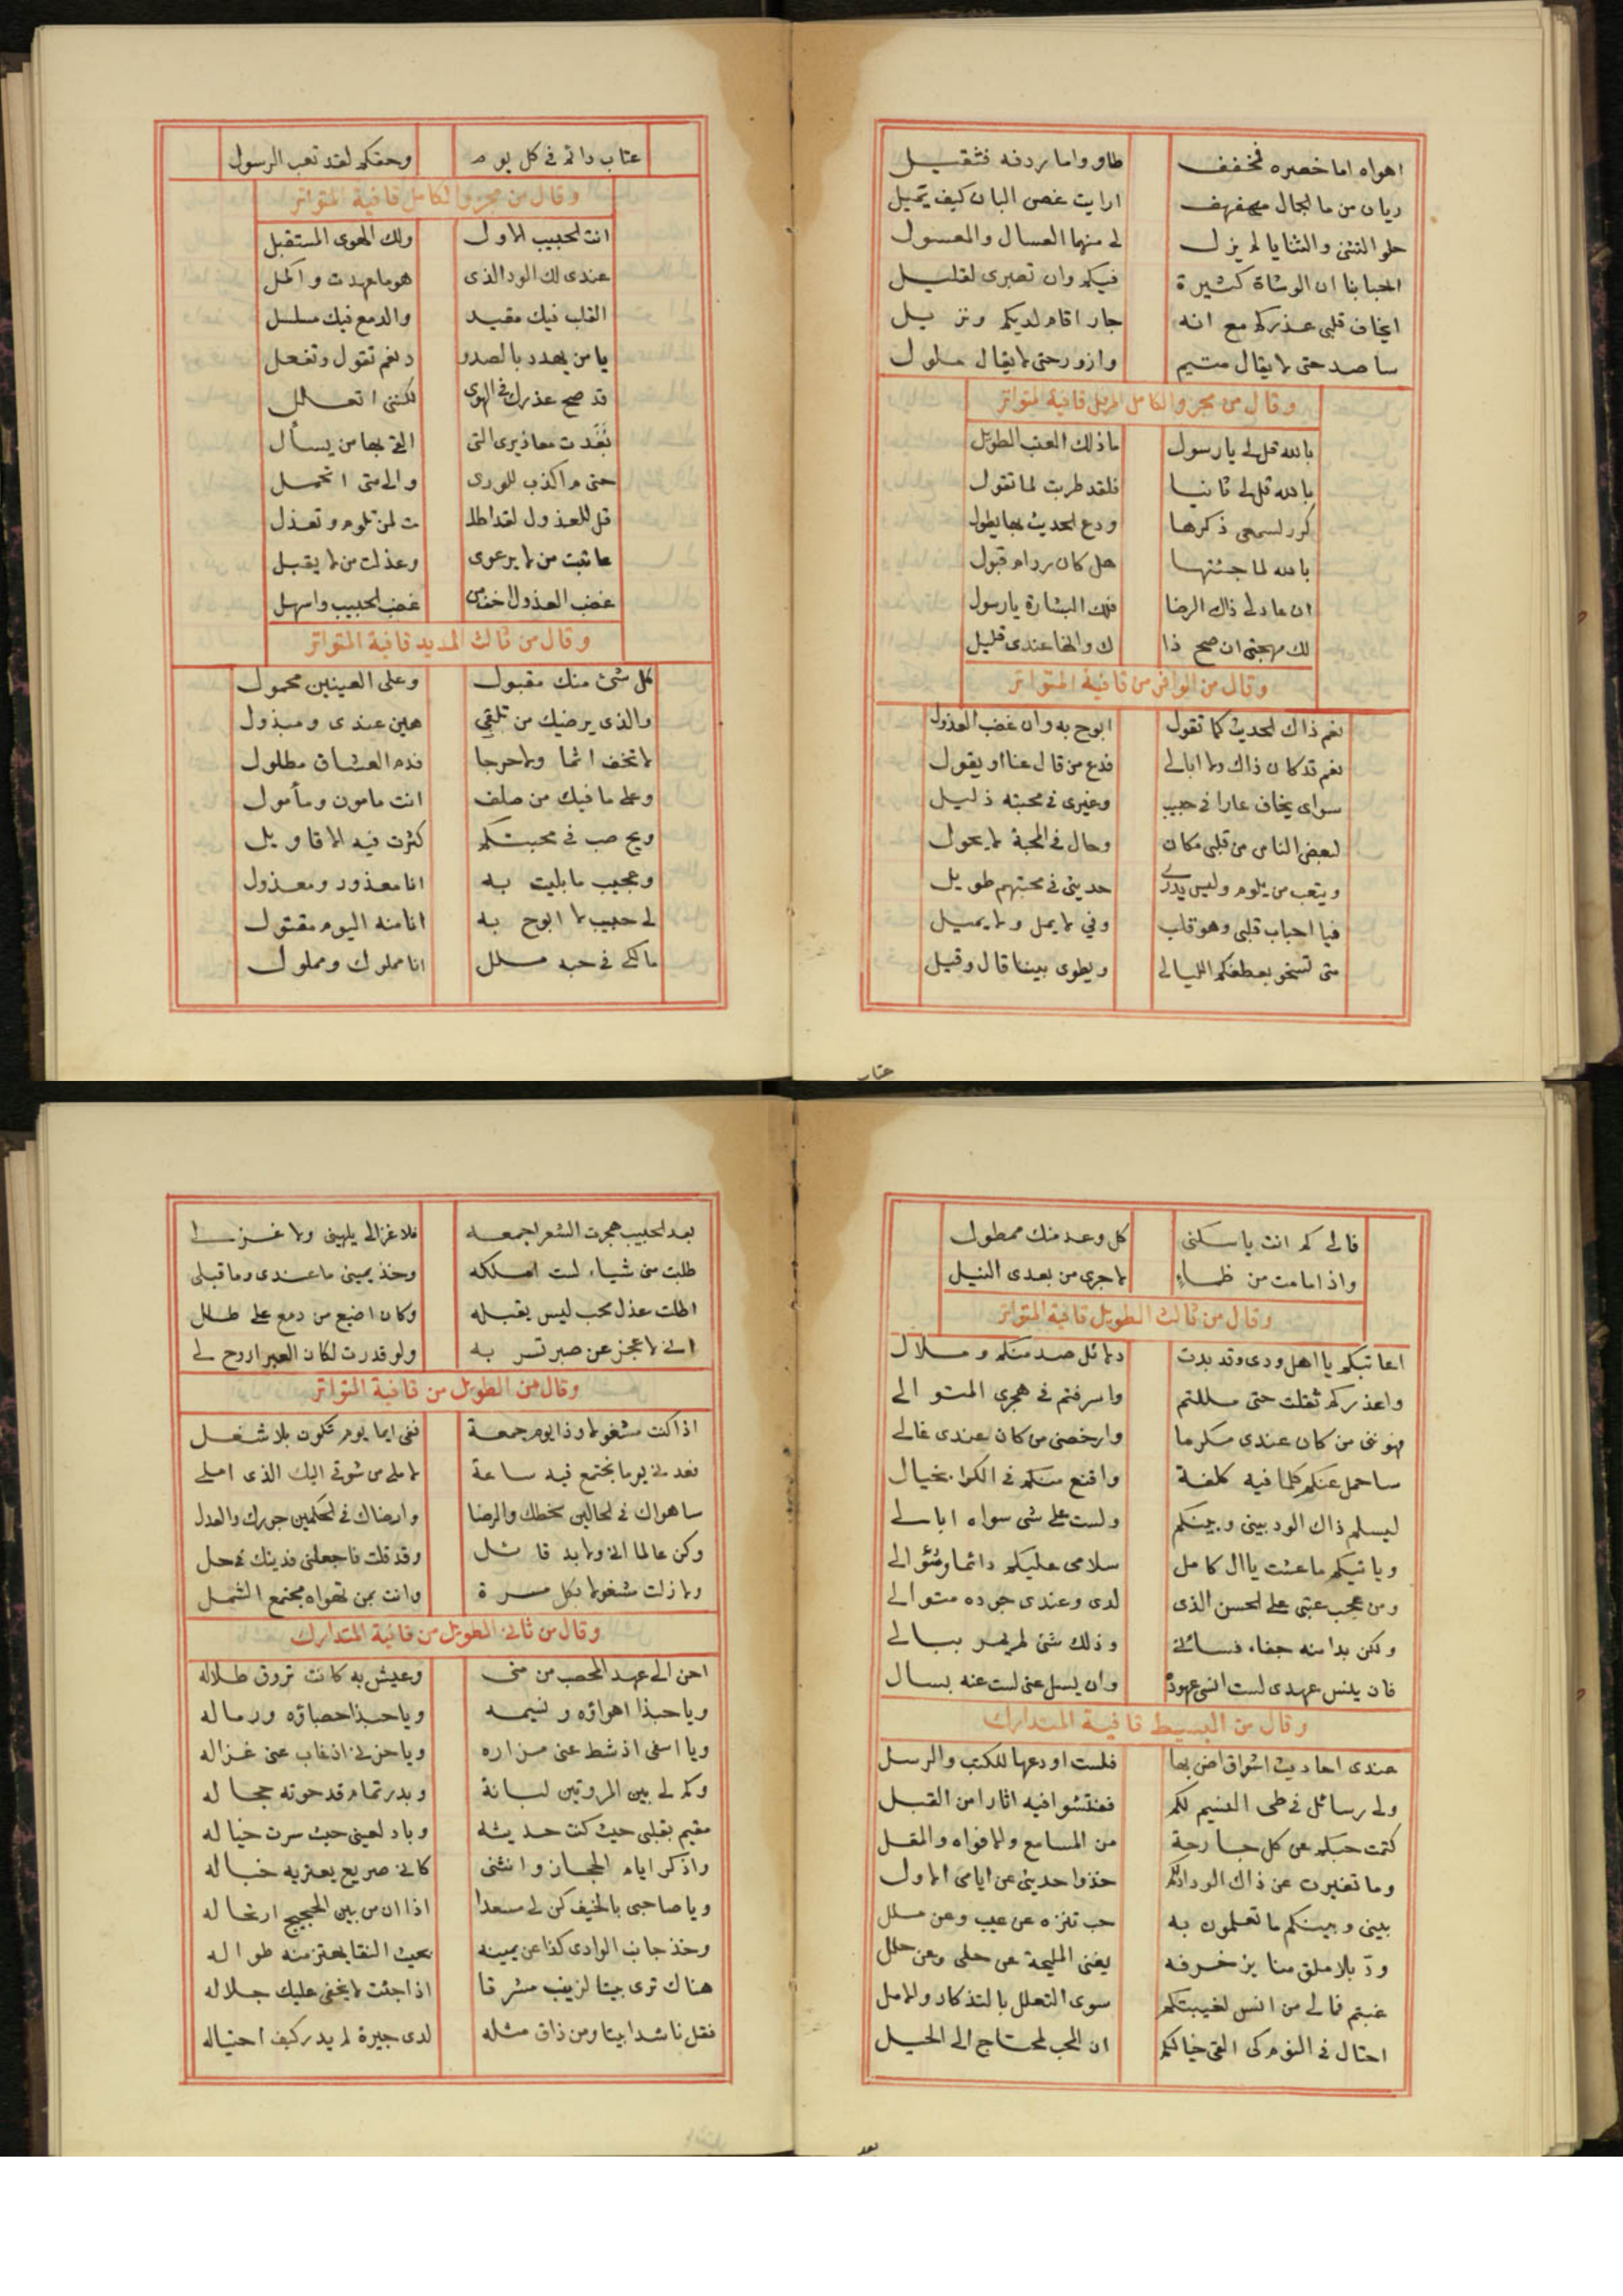 اهواه اما خصره فمخفف طاو واما ردفه فثقيل
ريان من ما الجمال مهفهف ارايت غصن البان كيف يميل
حلو التثنى والثنايا لم يزل لى منهما العسال والمعسول
احبابنا ان الوشاة كثيرة فيكم وان تصبرى لقليل
ايخاف قلبى عذركم مع انه جار اقام لديكم ونزيل
ساصد حتى لا يقال متيم وازور حتى لا يقال ملول
وقال من مجزو الكامل المرفل قافية المتواتر
بالله قل لى يا رسول ما ذلك العتب الطويل
بالله قل لى ثانيا فلقد طربت لما تقول
كرر لسمعى ذكرها ودع الحديث بها يطول
بالله لما جئتها هل كان ردام قبول
ان عاد لى ذاك الرضا فلك البشارة يا رسول
لك مهجتى ان صح ذا ك وانها عندى قليل
وقال من الوافر من قافية المتواتر
نعم ذاك الحديث كما تقول ابوح به وان غضب العذول
نعم قد كان ذاك ولا ابالى فدع من قال عنا او يقول
سواى يخاف عارا فى حبيب وغيرى فى محبته ذليل
لبعض الناس من قلبى مكان وحال فى المحبة لا يحول
ويتعب من يلوم وليس يدرى حديثى فى محبتهم طويل
فيا احباب قلبى وهو قلب وفي لا يمل ولا يميل
متى تسخو بعطفكم الليالى ويطوى بيننا قال وقيل
عتاب
عتاب دائم فى كل يوم وحقكم لقد تعب الرسول
وقال من مجزو الكامل قافية المتواتر
انت الحبيب الاول ولك الهوى المستقبل
عندى لك الود الذى هو ما عهدت واكمل
القلب فيك مقيد والدمع فيك مسلسل
يا من يهدد بالصدو د نعم تقول وتفعل
قد صح عذرك فى الهوى لكننى اتعلل
نفدت معاذيرى التى القى بها من يسأل
حتى م اكذب للورى والى متى اتحمل
قل للعذول لقد اطلـ ت لمن تلوم وتعذل
عاتبت من لا يرعوى وعذلت من لا يقبل
غضب العذول اخف من غضب الحبيب واسهل
وقال من ثالث المديد قافية المتواتر
كل شئ منك مقبول وعلى العينين محمول
والذى يرضيك من تلفى هين عندى ومبذول
لا تخف اثما ولا حرجا فدم العشاق مطلول
وعلى ما فيك من صلف انت مامون ومأمول
ويح صب فى محبتكم كثرت فيه الاقاويل
وعجيب ما بليت به انا معذور ومعذول
لى حبيب لا ابوح به انا منه اليوم مقتول
مالكى فى حبه ملل انا مملوك ومملول
فالى كم انت يا سكنى كل وعد منك ممطول
واذا مامت من ظماء لا جرى من بعدى النيل
وقال من ثالث الطويل قافية المتواتر
اعاتبكم يا اهل ودى وقد بدت دلائل صد منكم وملال
واعذركم ثقلت حتى مللتم واسرفتم فى هجرى المتوالى
فهوننى من كان عندى مكرما وارخصنى من كان عندى غالى
ساحمل عنكم كلما فيه كلفة واقنع منكم فى الكرا بخيال
ليسلم ذاك الود بينى وبينكم ولست على شى سواه ابالى
وياتيكم ما عشت يا ال كامل سلامى عليكم دائما وسؤالى
ومن عجب عتبى على الحسن الذى لدى وعندى جوده متوالى
ولكن بدا منه جفاء فسائنى وذلك شئ لم يمر ببالى
فان ينس عهدى لست انسى عهوده وان يسل عنى لست عنه بسال
وقال من البسيط قافية المتدارك
عندى احاديث اشواق اضن بها فلست اودعها للكتب والرسل
ولى رسائل فى طى النسيم لكم ففتشوا فيه اثارا من القبل
كتمت حبكم عن كل جارحة من المسامع والافواه والمقل
وما تغيرت عن ذاك الوداد لكم خذوا حديثى عن ايامى الاول
بينى وبينكم ما تعلمون به حب تنزه عن عيب وعن ملل
ود بلا ملق منا يزخرفه يغنى المليحة عن حلى وعن حلل
غبتم فما لى من انس لغيبتكم سوى التعلل بالتذكار والامل
احتال فى النوم كى القى خيالكم ان المحب لمحتاج الى الحيل
بعد
بعد الحبيب هجرت الشعر اجمعه فلا غزالى يلهينى ولا غزلى
طلبت منى شياء لست املكه وخذ يمينى ما عندى وما قبلى
اطلت عذل محب ليس يقبله وكان اضيع من دمع على طلل
انى لاعجز عن صبر تسر به ولو قدرت لكان الصبر اروح لى
وقال من الطويل من قافية المتواتر
اذا كنت مشغولا وذا يوم جمعة ففى ايما يوم تكون بلا شغل
فعدنى يوما نجتمع فيه ساعة لاملى من شوقى اليك الذى املى
ساهواك فى الحالين سخطك والرضا وارضاك فى الحكمين جورك والعدل
وكن عالما انى ولابد قائل وقد قلت فاجعلنى فديتك فى حل
ولا زلت مشغولا بكل مسرة وانت بمن تهواه مجتمع الشمل
وقال من ثانى الطويل من قافية المتدارك
احن الى عهد المحصب من منى وعيش به كانت تروق ظلاله
ويا حبذا اهواؤه ونسيمه ويا حبذا حصباؤه ورماله
ويا اسفى اذ شط عنى مزاره ويا حزنى اذ غاب عنى غزاله
وكم لى بين المروتين لبانة وبدر تمام قد حوته حجاله
مقيم بقلبى حيث كنت حديثه وباد لعينى حيث سرت خياله
واذكر ايام الحجاز وانثنى كانى صريع يعتريه خباله
ويا صاحبى بالخيف كن لى مسعدا اذا ان من بين الحجيج ارتحاله
وخذ جانب الوادى كذا عن يمينه بحيث النقا يهتز منه طواله
هناك ترى بيتا لزينب مشرقا اذا جئت لا يخفى عليك جلاله
فقل ناشدا بيتا ومن ذاق مثله لدى جيرة لم يدر كيف احتياله